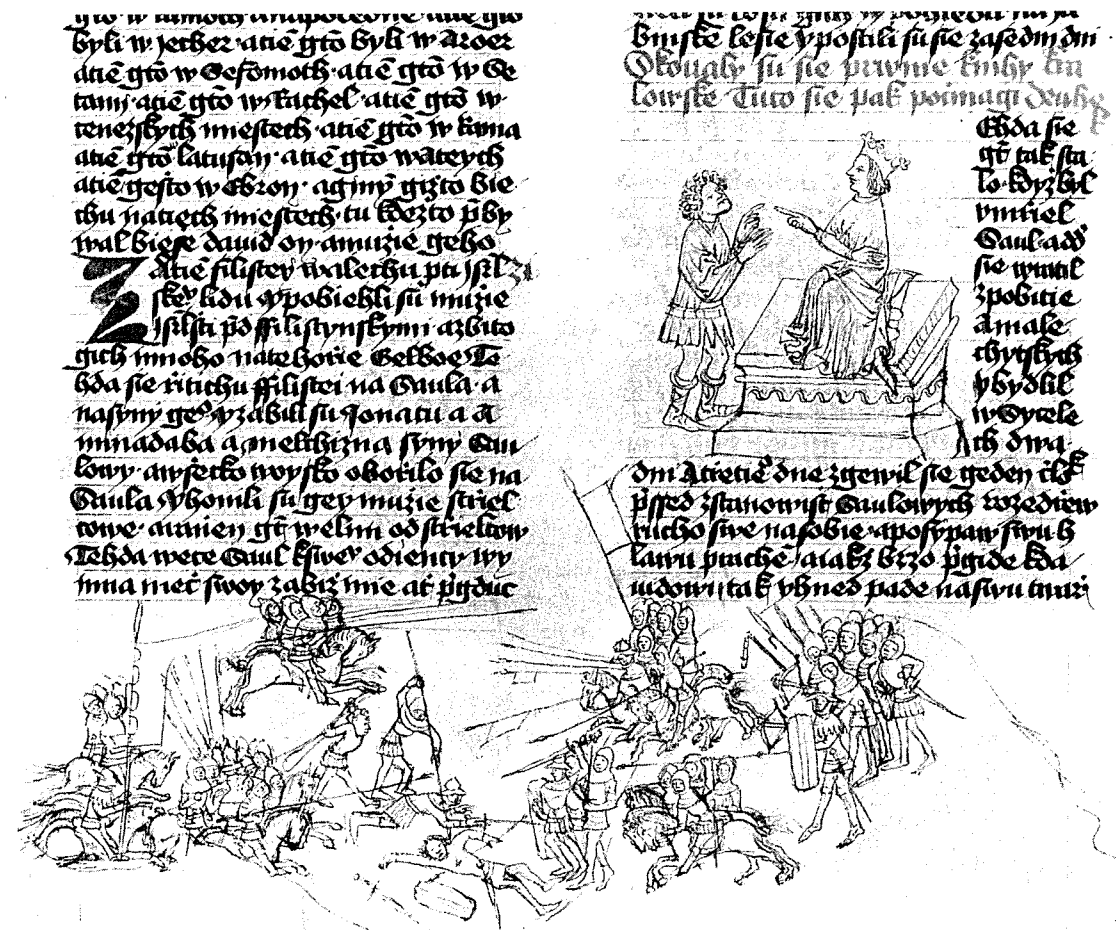 byli w Jether · a tiē gtō byli w Aroer
a tiē gtō w Sefomoth · a tiē gtō w Se
tami · a tiē gtō w Rachel · a tiē gtō w
miestech · a tiē gtō w kama
a tiē gtō · a tiē gtō
a tiē gesto w Ebron · a giný gizto bie
chu na tiech miestech · tu kdezto p̄by
wal biese dauid on · a muzie geho
A tiē filistey walechu pti Jsrl
skey lidu y pobiehli su muzie
Jsrlsti p̄d ffilistynskymi a zbito
gich mnoho na te horie Gelboe Te
hda sie rituchu ffilistei na Saula · a
na syny geº y zabili su Jonatu a A
minadaba a melchizua syny Sau
lowy · a wsecko woysko oborilo sie na
Saula y honili su gey muzie striel
cowe · a ranien gt welmi od strielcow
Tehda wece Saul k swey odiency wy
mna mec swoy zabiz mie at p̄gduc
binske lesie y postili su sie za sedm dni
Skonaly su sie prwnie knihy kra
lowske Tuto sie pak poimagi druhe
Ehda sie
gt tak sta
lo · kdyz byl
vmriel
Saul · a dd
sie wratil
z pobitie
Amale
chytskych
y bydlil
w Sycele
ch dwa
dni A trетieº dne zgewil sie geden člk
p̄ssed z stanowist Saulowych rozedrew
rucho swe na sobie · a posypaw swu h
lawu prache · a iakz brzo p̄gide k da
uidowi tak yhned pade na swu twarz